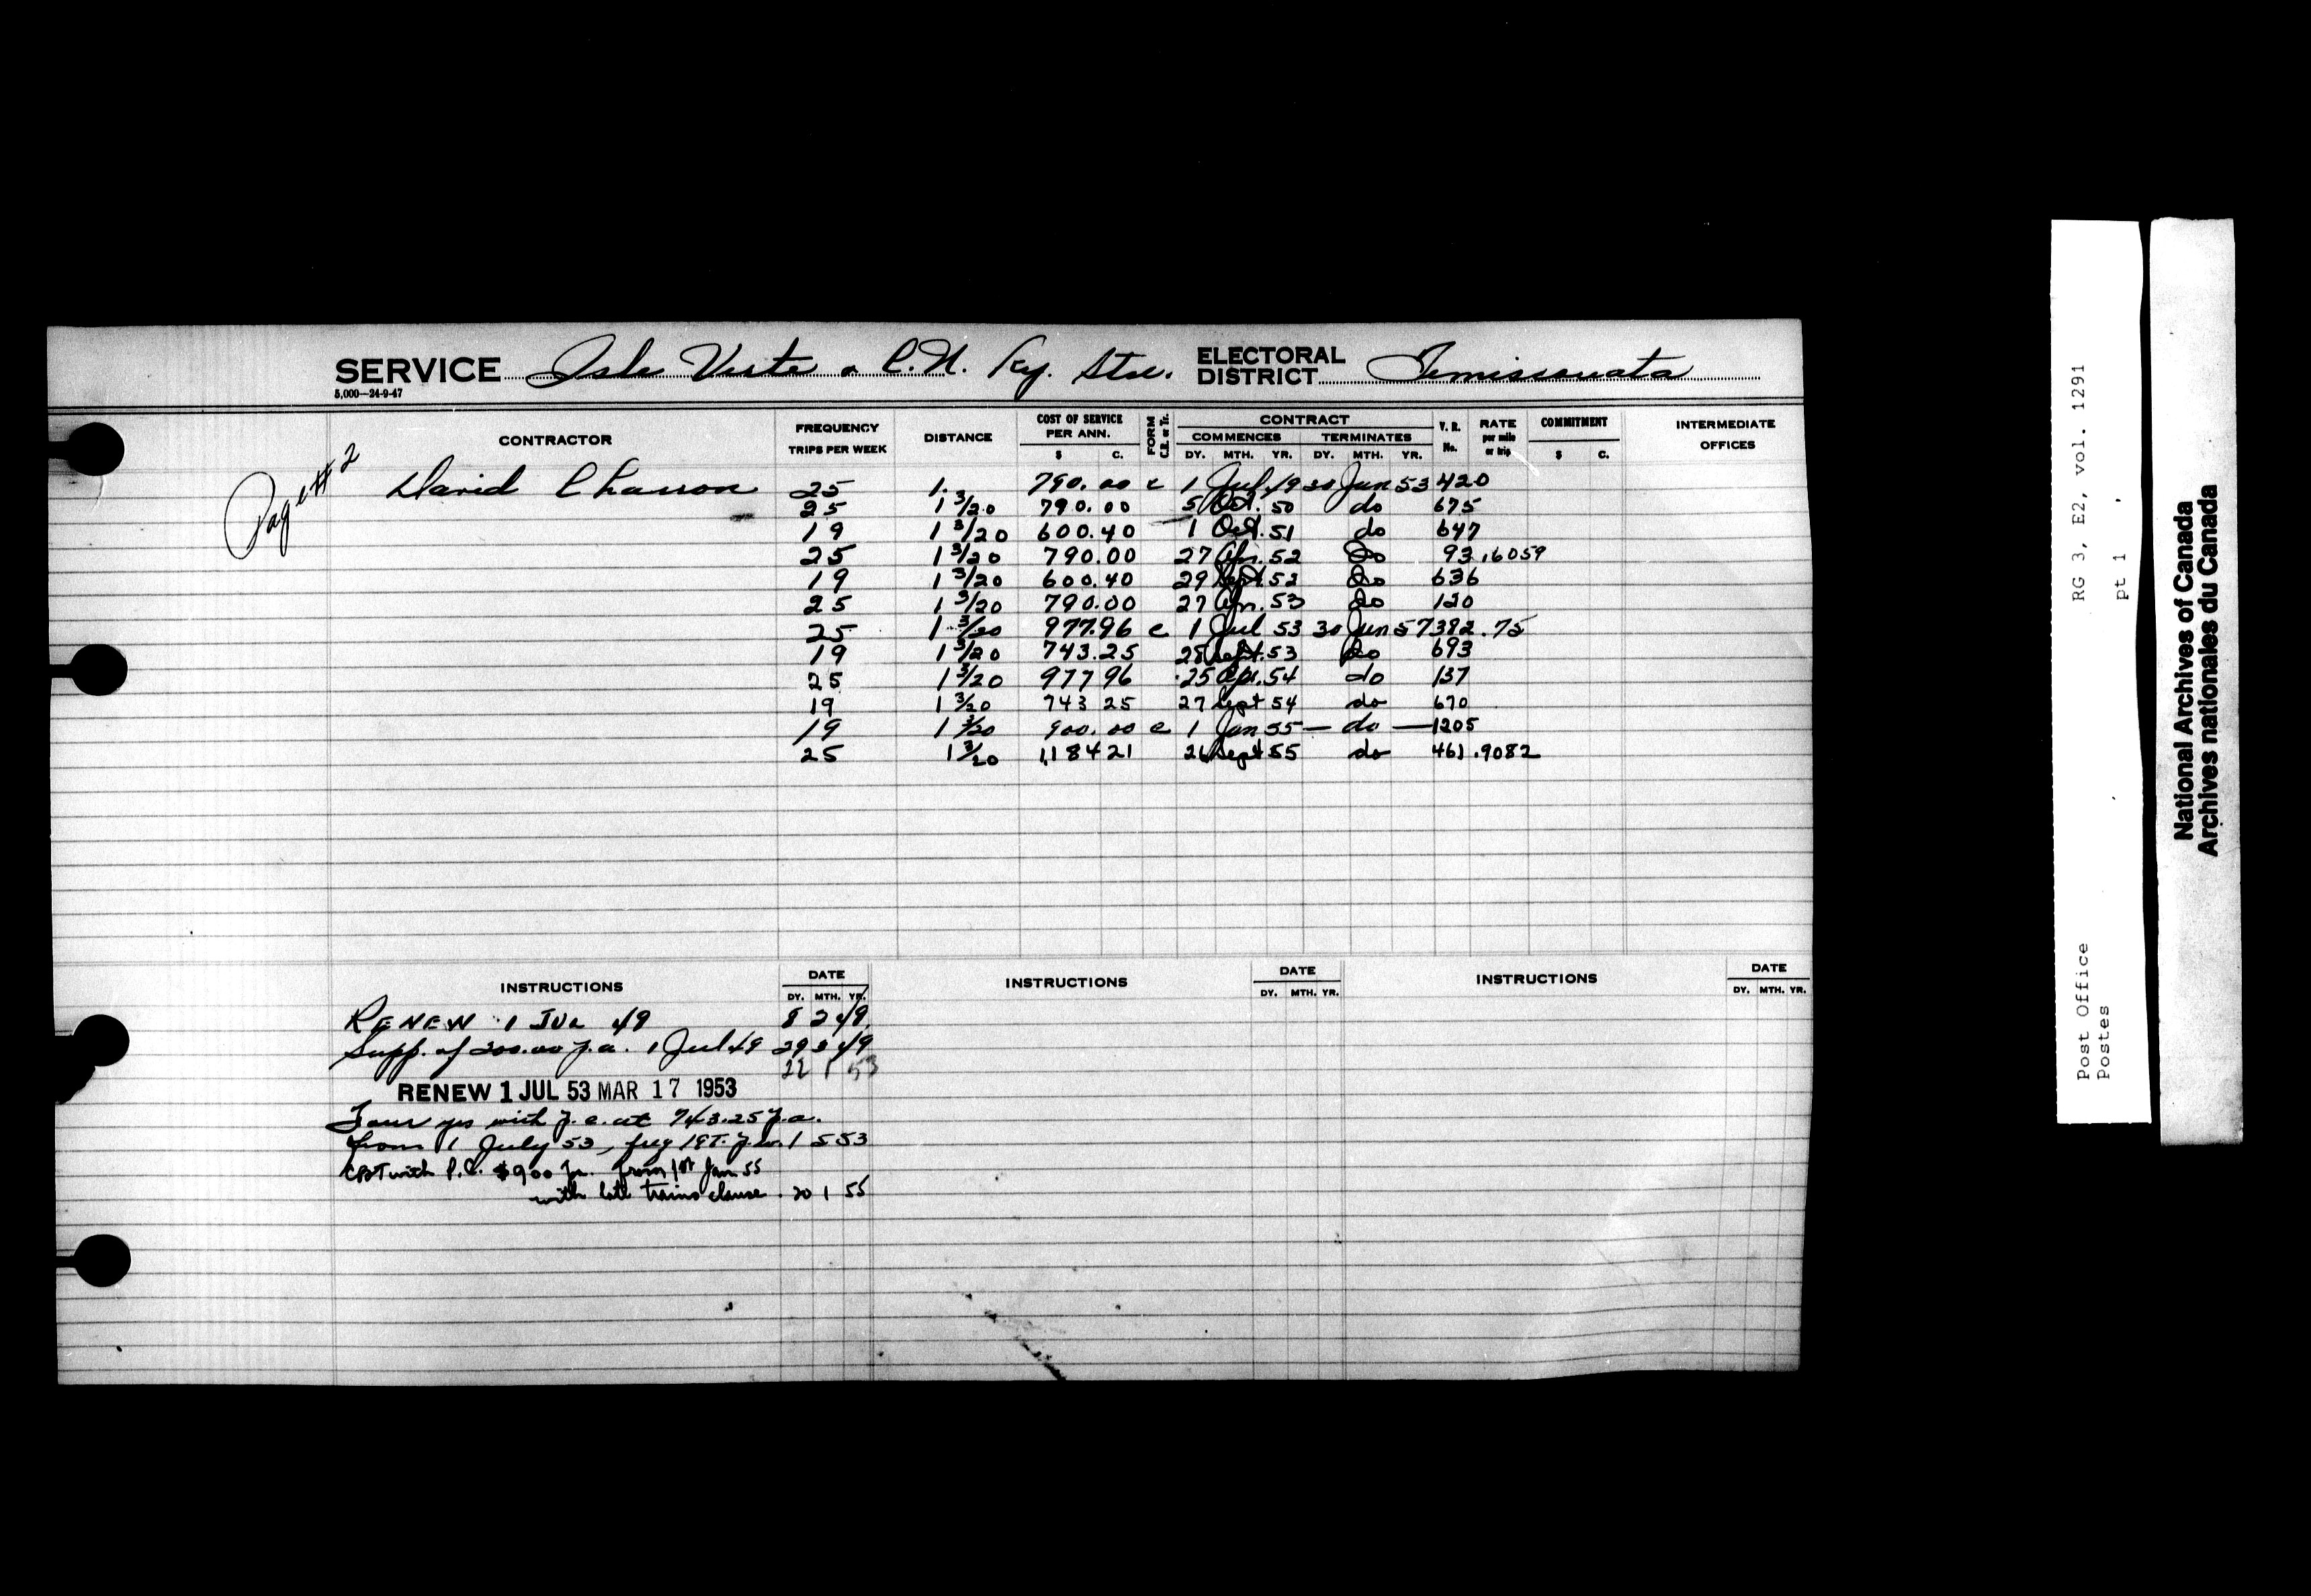 SERVICE Isle Verte & C.N. Ry. Stn. ELECTORAL DISTRICT Temiscouata
5,000—24-9-47
CONTRACTOR FREQUENCY TRIPS PER WEEK DISTANCE COST OF SERVICE PER ANN. $ C. FORM CONTRACT COMMENCES DY. MTH. YR. TERMINATES DY. MTH. YR. V. R. No. RATE per mile or trip COMMITMENT $ C. INTERMEDIATE OFFICES
Page #2
David Charron 25 1. 790.00 c 1 Jul 49 30 Jun 53 420
25 1 3/20 790.00 5 Oct. 50 do 675
19 1 3/20 600.40 1 Oct. 51 do 647
25 1 3/20 790.00 27 Apr. 52 do 93 .6059
19 1 3/20 600.40 29 Sept. 52 do 636
25 1 3/20 790.00 27 Apr. 53 do 120
25 1 3/20 977.96 c 1 Jul 53 30 Jun 57 382 .75
19 1 3/20 743.25 28 Sept. 53 do 693
25 1 3/20 977 96 25 Apr. 54 do 137
19 1 3/20 743 25 27 Sept 54 do 670
19 1 3/20 900.00 c 1 Jan 55 — do — 1205
25 1 3/20 1,184 21 26 Sept 55 do 461 .9082
INSTRUCTIONS DATE DY. MTH. YR. INSTRUCTIONS DATE DY. MTH. YR. INSTRUCTIONS DATE DY. MTH. YR.
RENEW 1 JUL 49 8 2 49
Supp. of 200.00 p.a. 1 Jul 49 29 3 49
22 1 53
RENEW 1 JUL 53 MAR 17 1953
Four yrs with p.c. at 743.25 p.a.
from 1 July 53, freq 19T. p.w. 1 5 53
CBT with P.C. $900 pa. from 1st Jan 55
with late trains clause. 20 1 55
RG 3, E2, vol. 1291
pt 1
Post Office
Postes
National Archives of Canada
Archives nationales du Canada